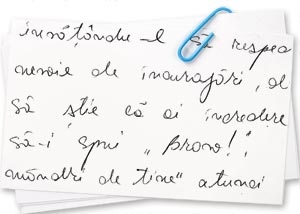 învățându-l să respec
nevoie de încurajări, el
să știe că ai încredere
să-i spui „bravo!”,
mândri de tine” atunci